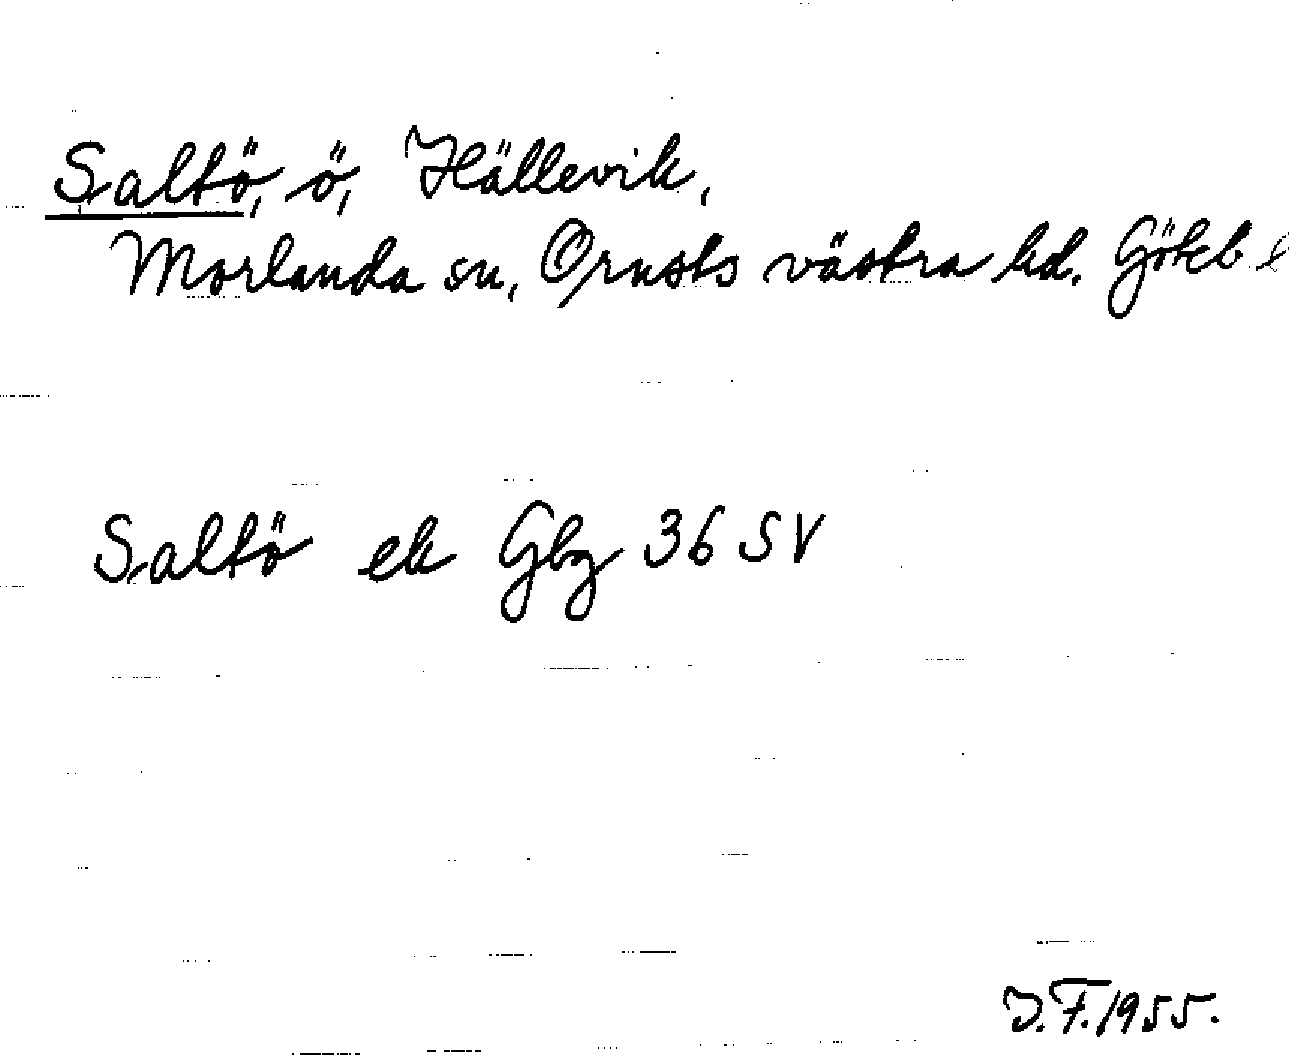 Saltö, ö, Hällevik,
Morlanda sn, Orusts västra hd. Göteb l
Saltö ek Gbg 36 SV
J.F. 1955.